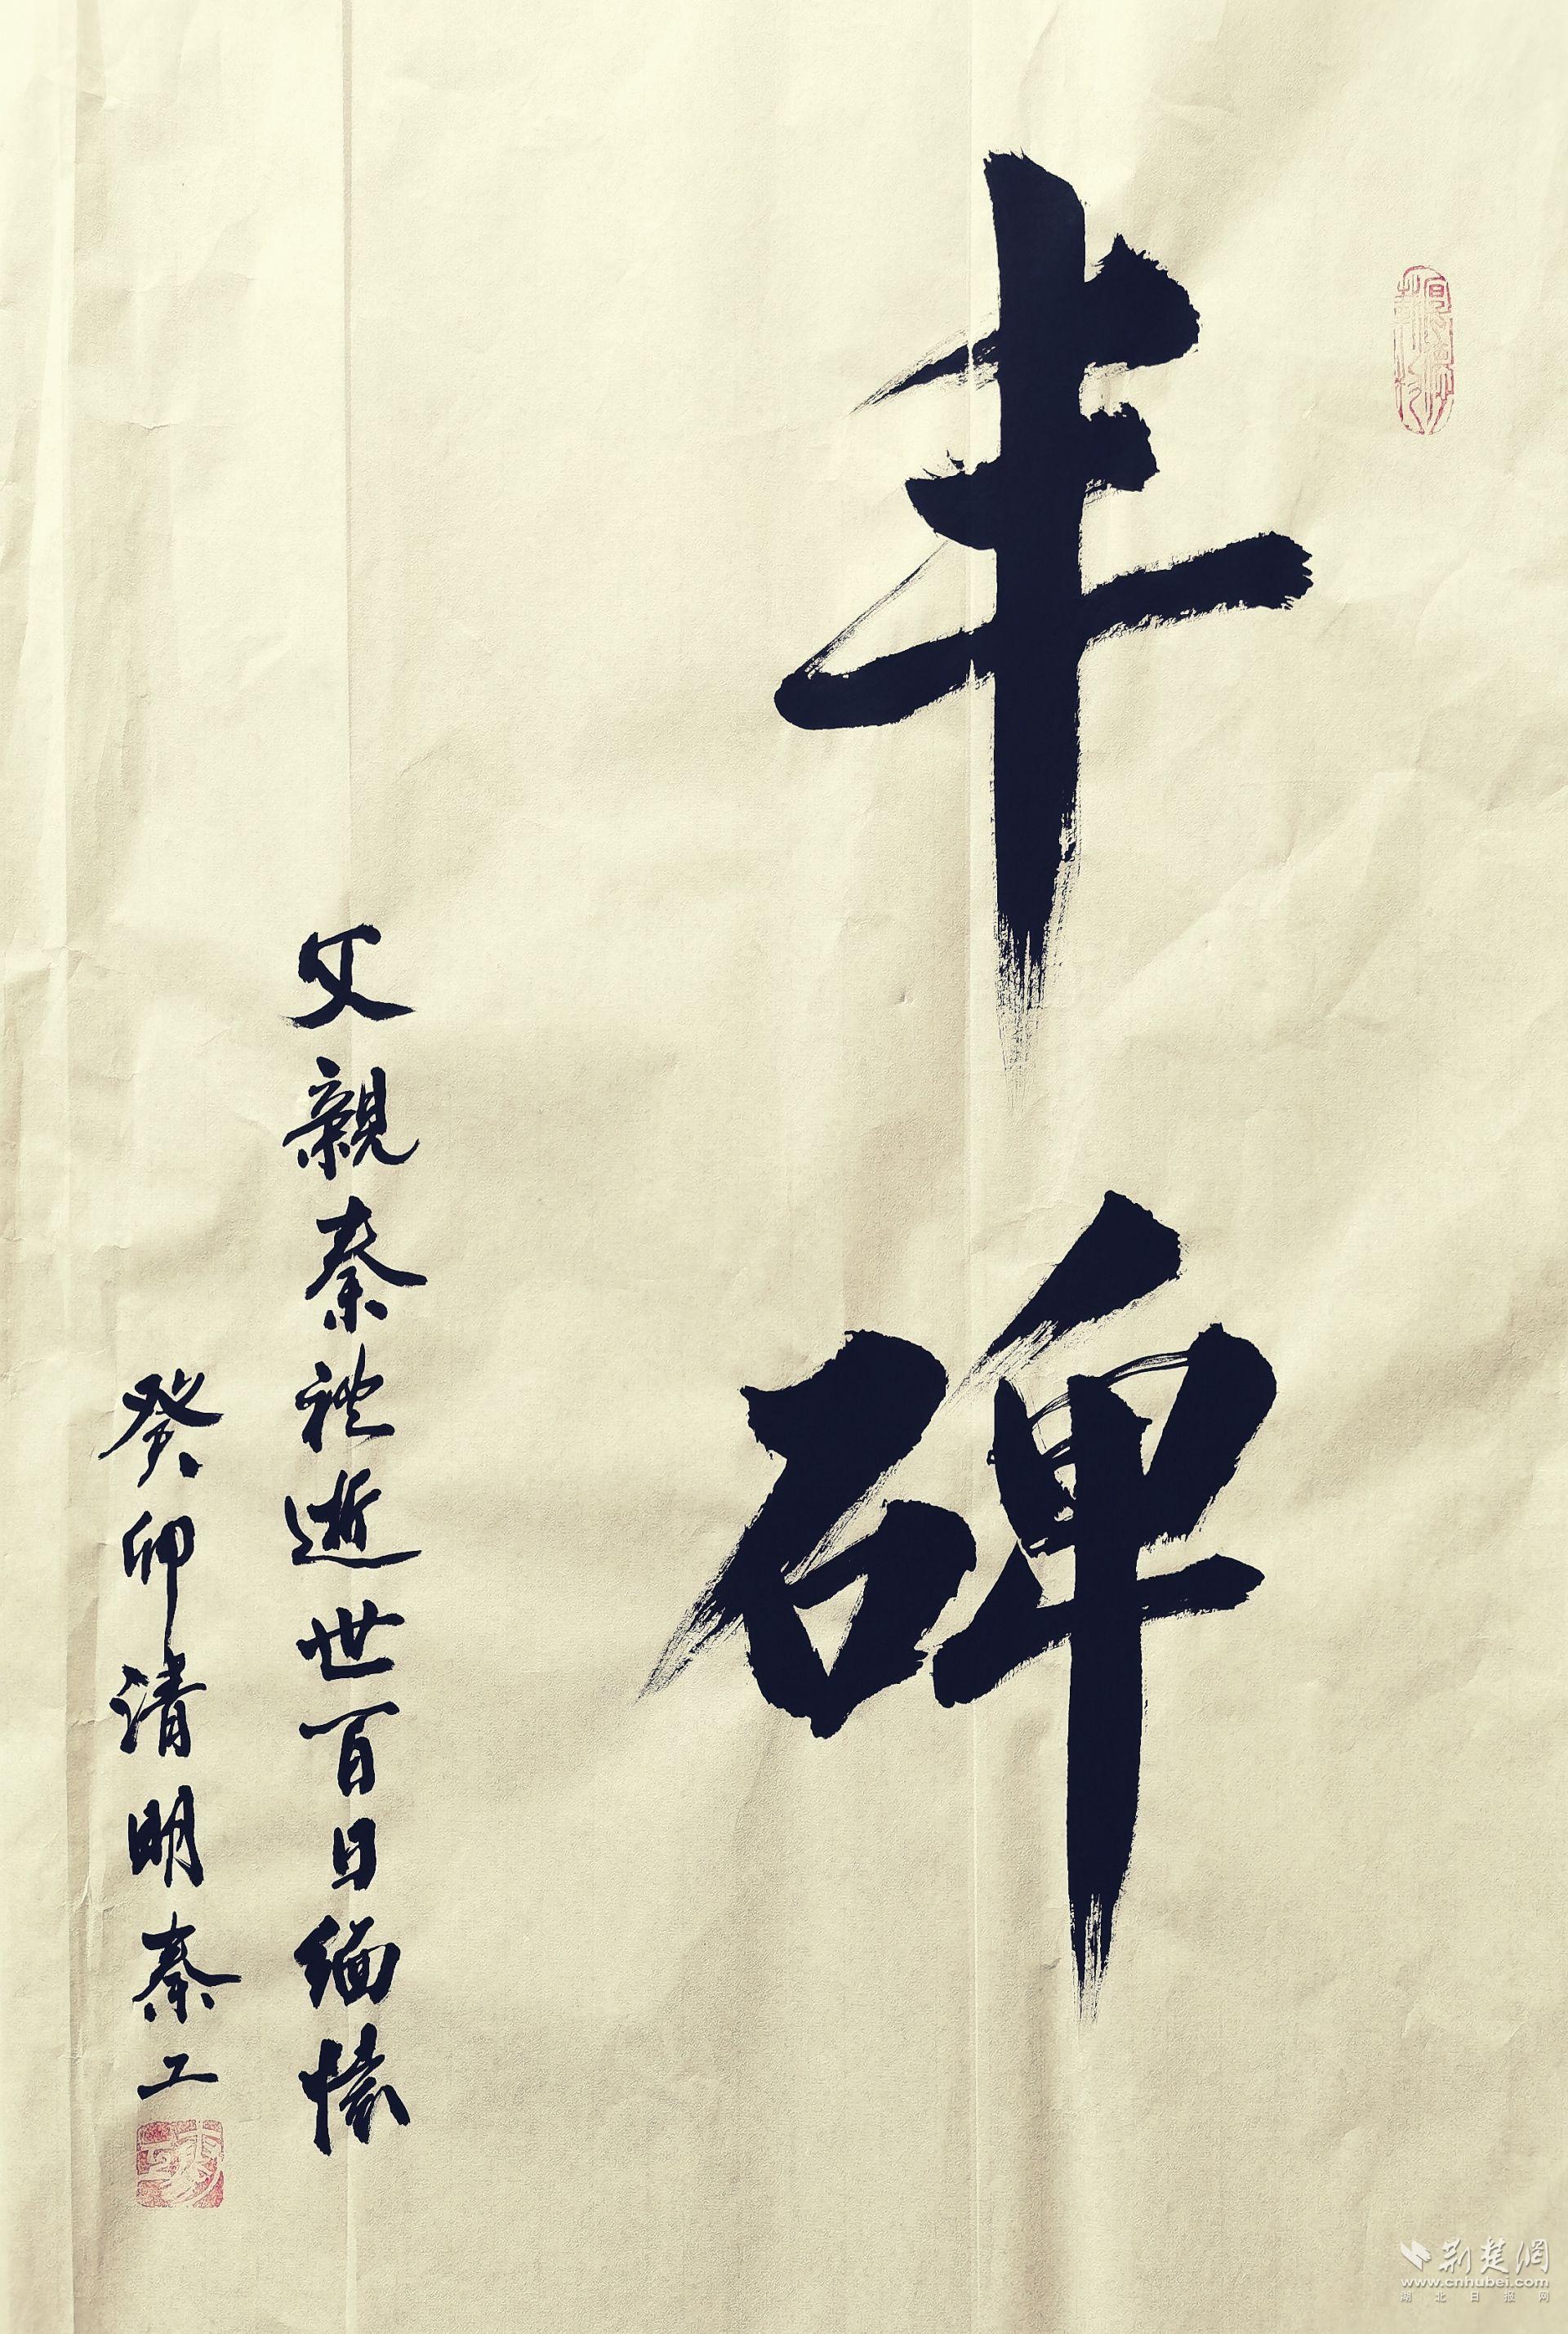 丰碑
父親秦礼逝世百日缅懷
癸卯清明秦工
荆楚網
www.cnhubei.com
湖北日报网